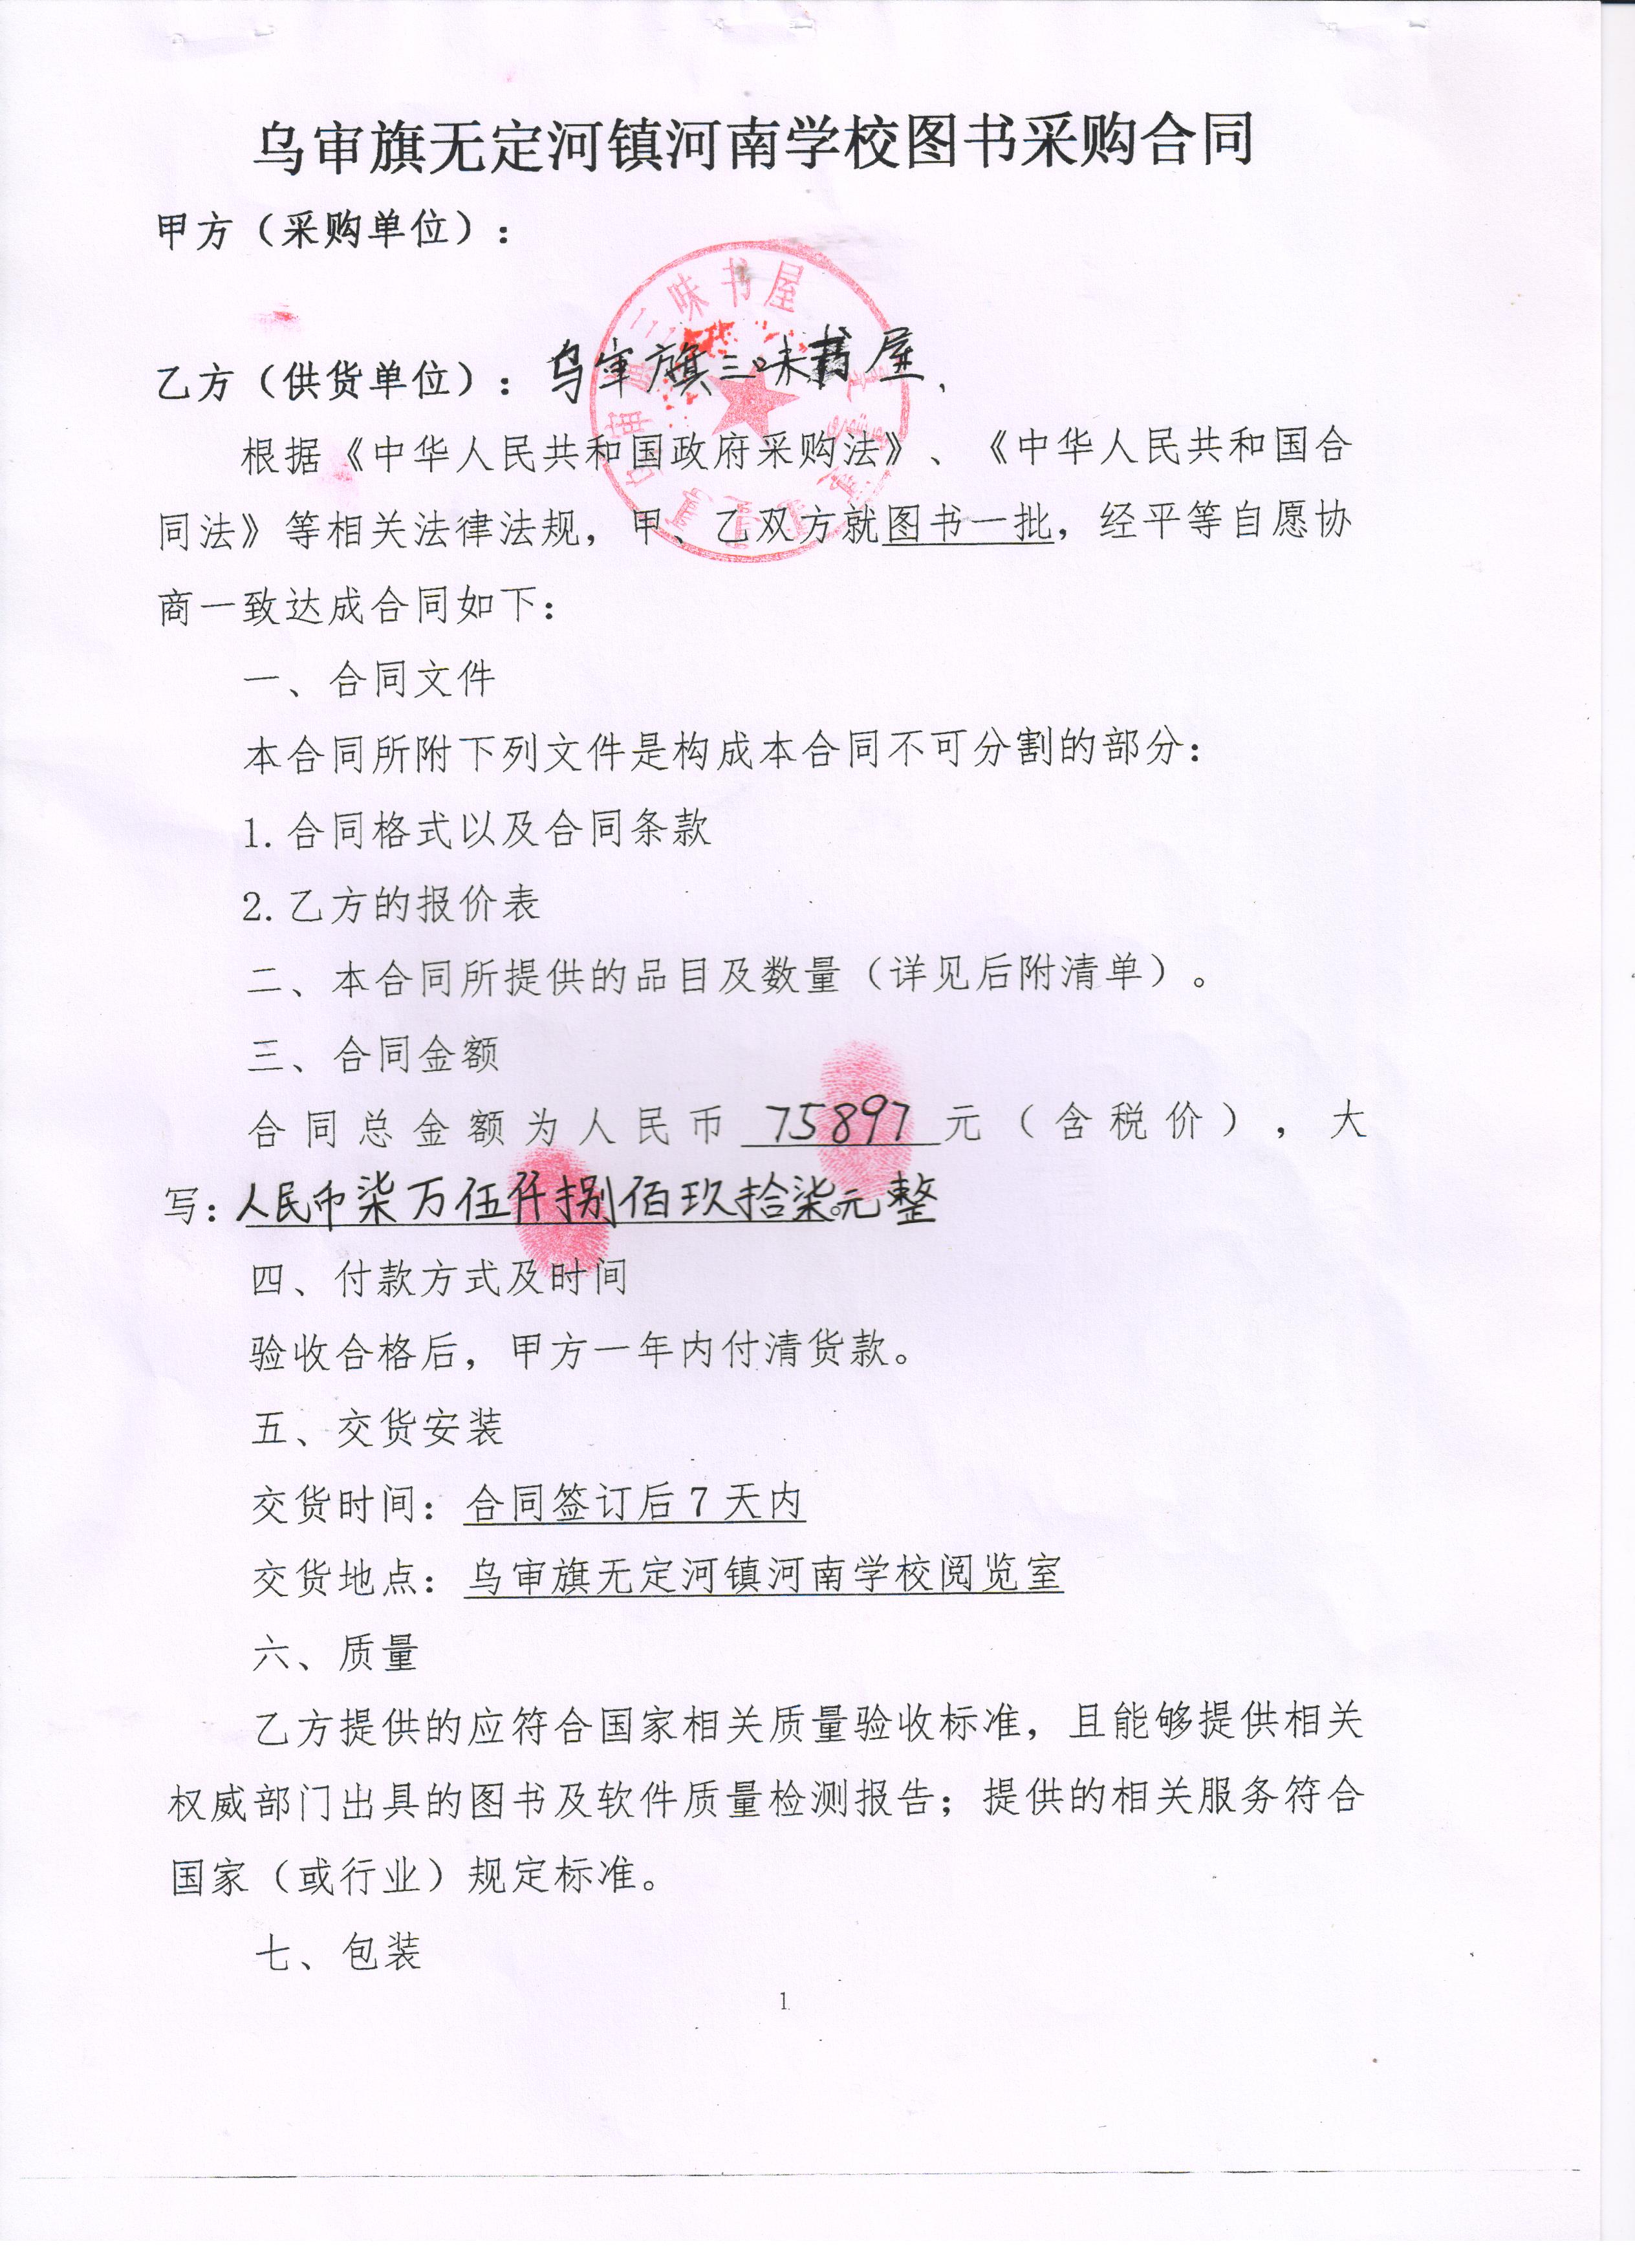 乌审旗无定河镇河南学校图书采购合同
甲方（采购单位）：
乌审旗三味书屋
乙方（供货单位）：乌审旗三味书屋、
根据《中华人民共和国政府采购法》、《中华人民共和国合
同法》等相关法律法规，甲、乙双方就图书一批，经平等自愿协
商一致达成合同如下：
一、合同文件
本合同所附下列文件是构成本合同不可分割的部分：
1.合同格式以及合同条款
2.乙方的报价表
二、本合同所提供的品目及数量（详见后附清单）。
三、合同金额
合同总金额为人民币 75897 元（含税价），大
写：人民币柒万伍仟捌佰玖拾柒元整
四、付款方式及时间
验收合格后，甲方一年内付清货款。
五、交货安装
交货时间：合同签订后7天内
交货地点：乌审旗无定河镇河南学校阅览室
六、质量
乙方提供的应符合国家相关质量验收标准，且能够提供相关
权威部门出具的图书及软件质量检测报告；提供的相关服务符合
国家（或行业）规定标准。
七、包装
1